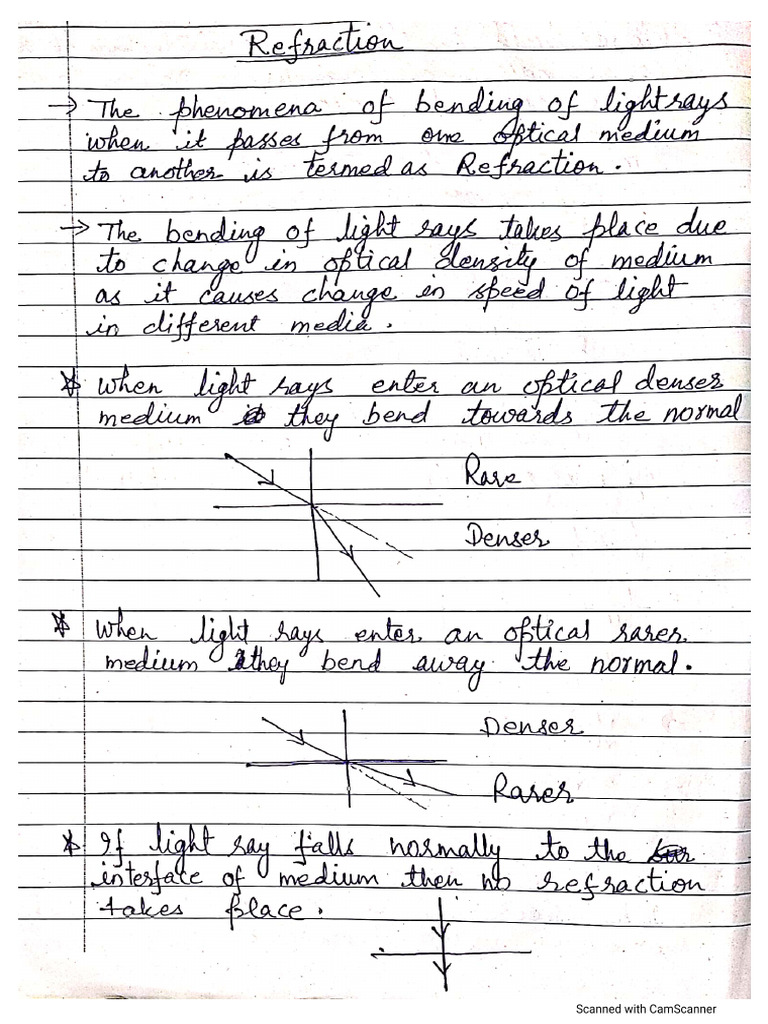 Refraction
→ The phenomena of bending of light rays
when it passes from one optical medium
to another is termed as Refraction.
→ The bending of light rays takes place due
to change in optical density of medium
as it causes change in speed of light
in different media.
☆ When light rays enter an optical denser
medium they bend towards the normal
Rare
Denser
☆ When light rays enter an optical rarer
medium they bend away the normal.
Denser
Rarer
☆ If light ray falls normally to the
interface of medium then no refraction
takes place.
Scanned with CamScanner